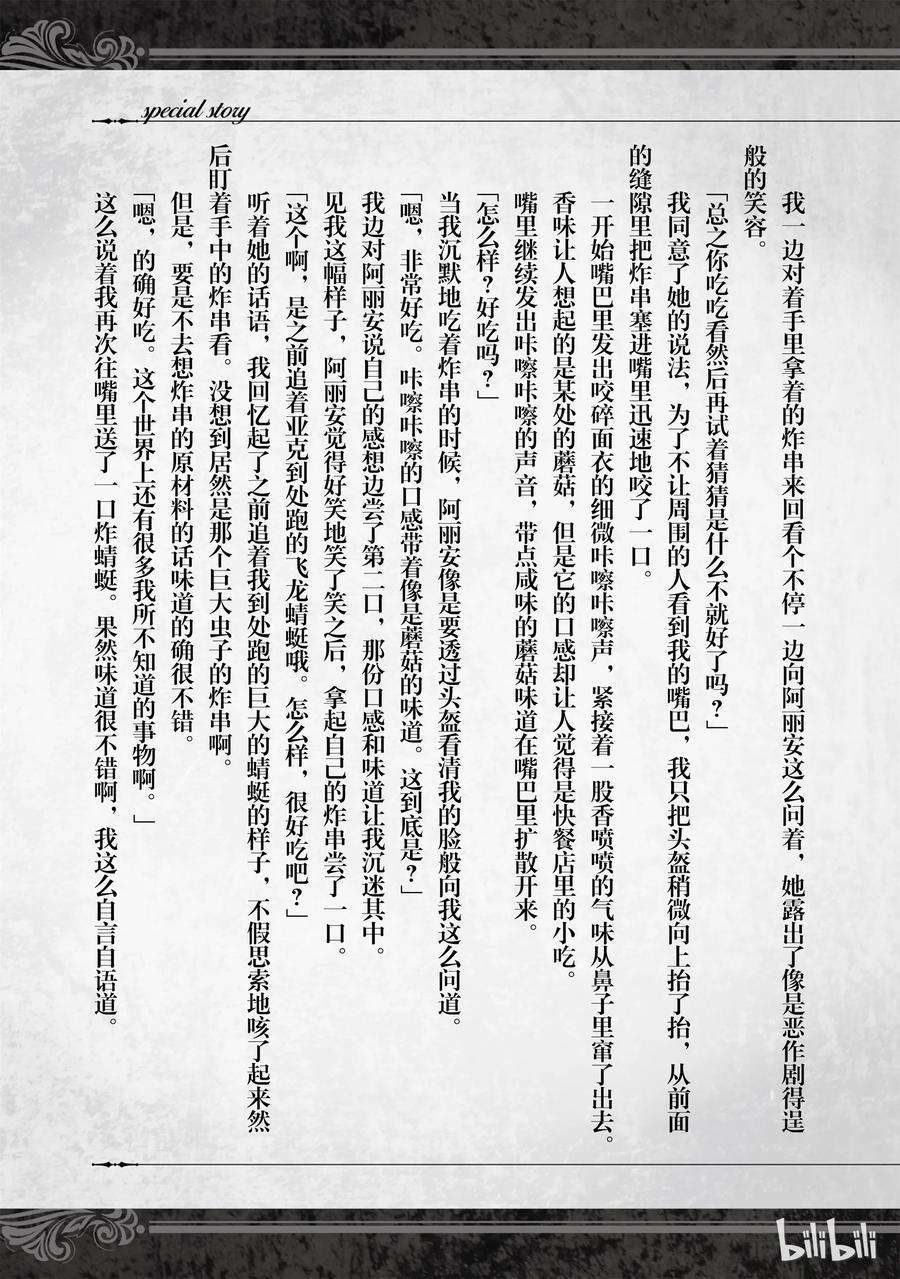 special story
我一边对着手里拿着的炸串来回看个不停一边向阿丽安这么问着，她露出了像是恶作剧得逞
般的笑容。
「总之你吃吃看然后再试着猜猜是什么不就好了吗？」
我同意了她的说法，为了不让周围的人看到我的嘴巴，我只把头盔稍微向上抬了抬，从前面
的缝隙里把炸串塞进嘴里迅速地咬了一口。
一开始嘴巴里发出咬碎面衣的细微咔嚓咔嚓声，紧接着一股香喷喷的气味从鼻子里窜了出去。
香味让人想起的是某处的蘑菇，但是它的口感却让人觉得是快餐店里的小吃。
嘴里继续发出咔嚓咔嚓的声音，带点咸味的蘑菇味道在嘴巴里扩散开来。
「怎么样？好吃吗？」
当我沉默地吃着炸串的时候，阿丽安像是要透过头盔看清我的脸般向我这么问道。
「嗯，非常好吃。咔嚓咔嚓的口感带着像是蘑菇的味道。这到底是？」
我边对阿丽安说自己的感想边尝了第二口，那份口感和味道让我沉迷其中。
见我这幅样子，阿丽安觉得好笑地笑了笑之后，拿起自己的炸串尝了一口。
「这个啊，是之前追着亚克到处跑的飞龙蜻蜓哦。怎么样，很好吃吧？」
听着她的话语，我回忆起了之前追着我到处跑的巨大的蜻蜓的样子，不假思索地咳了起来然
后盯着手中的炸串看。没想到居然是那个巨大虫子的炸串啊。
但是，要是不去想炸串的原材料的话味道的确很不错。
「嗯，的确好吃。这个世界上还有很多我所不知道的事物啊。」
这么说着我再次往嘴里送了一口炸蜻蜓。果然味道很不错啊，我这么自言自语道。
bilibili